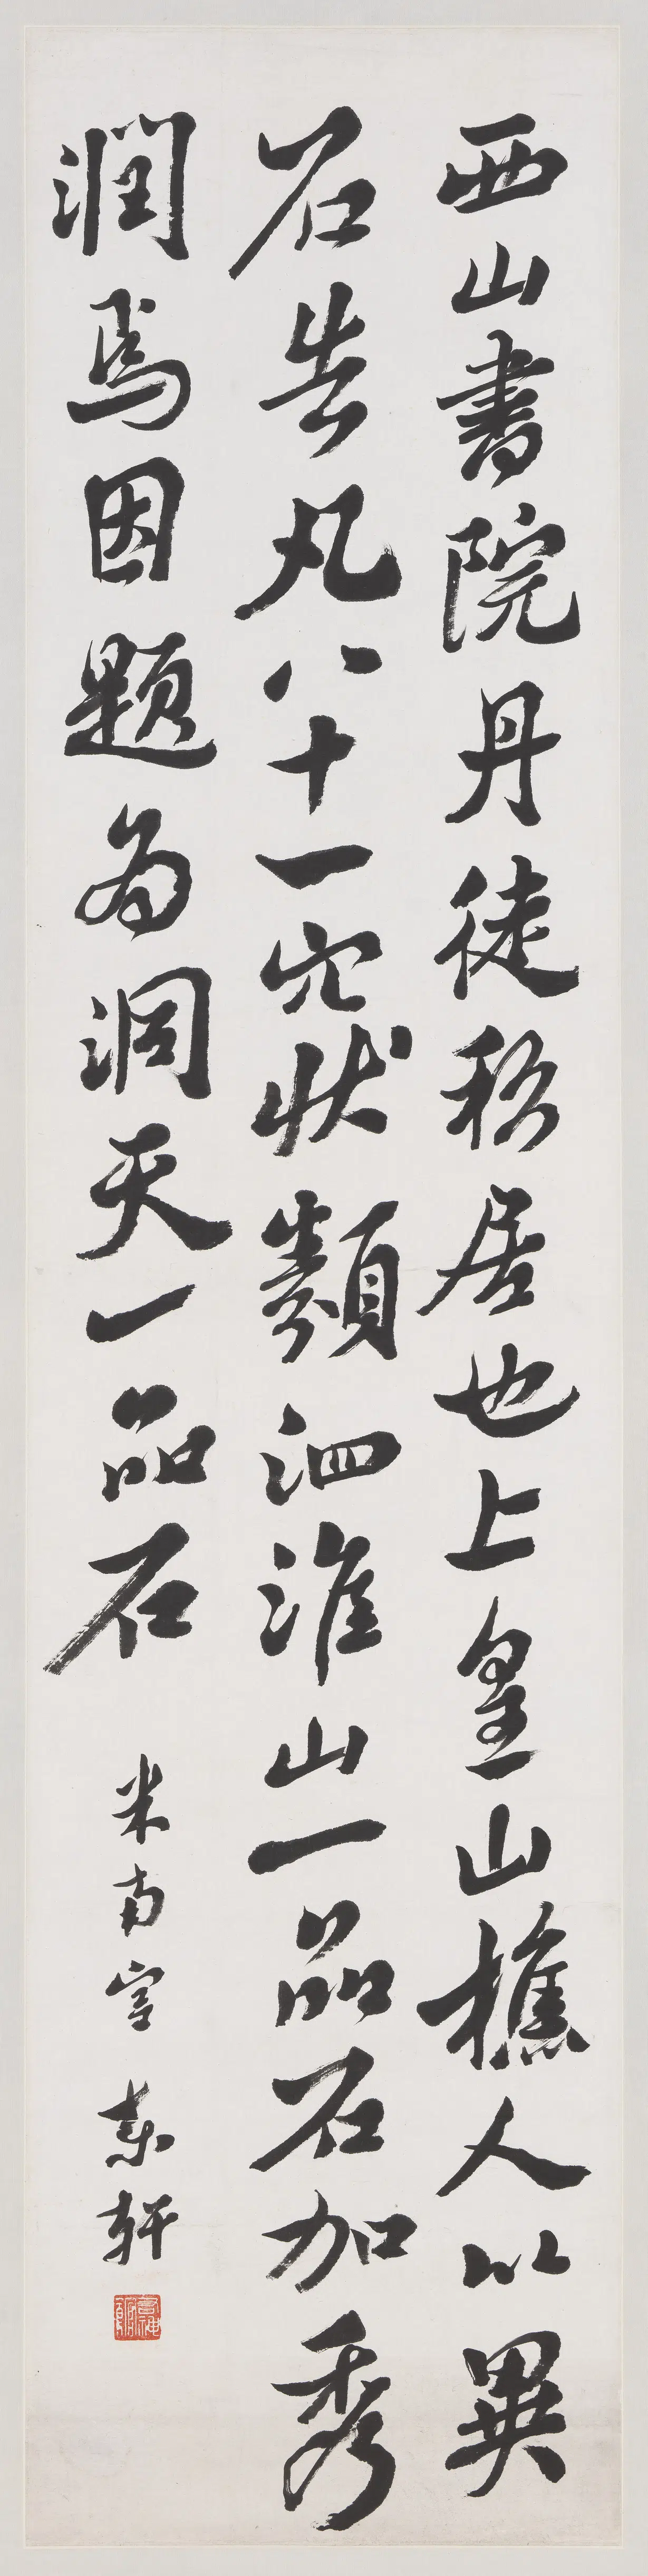 西山書院丹徒私居也上皇山樵人以異
石告凡八十一穴狀類泗淮山一品石加秀
潤焉因題為洞天一品石
米南宮 東軒